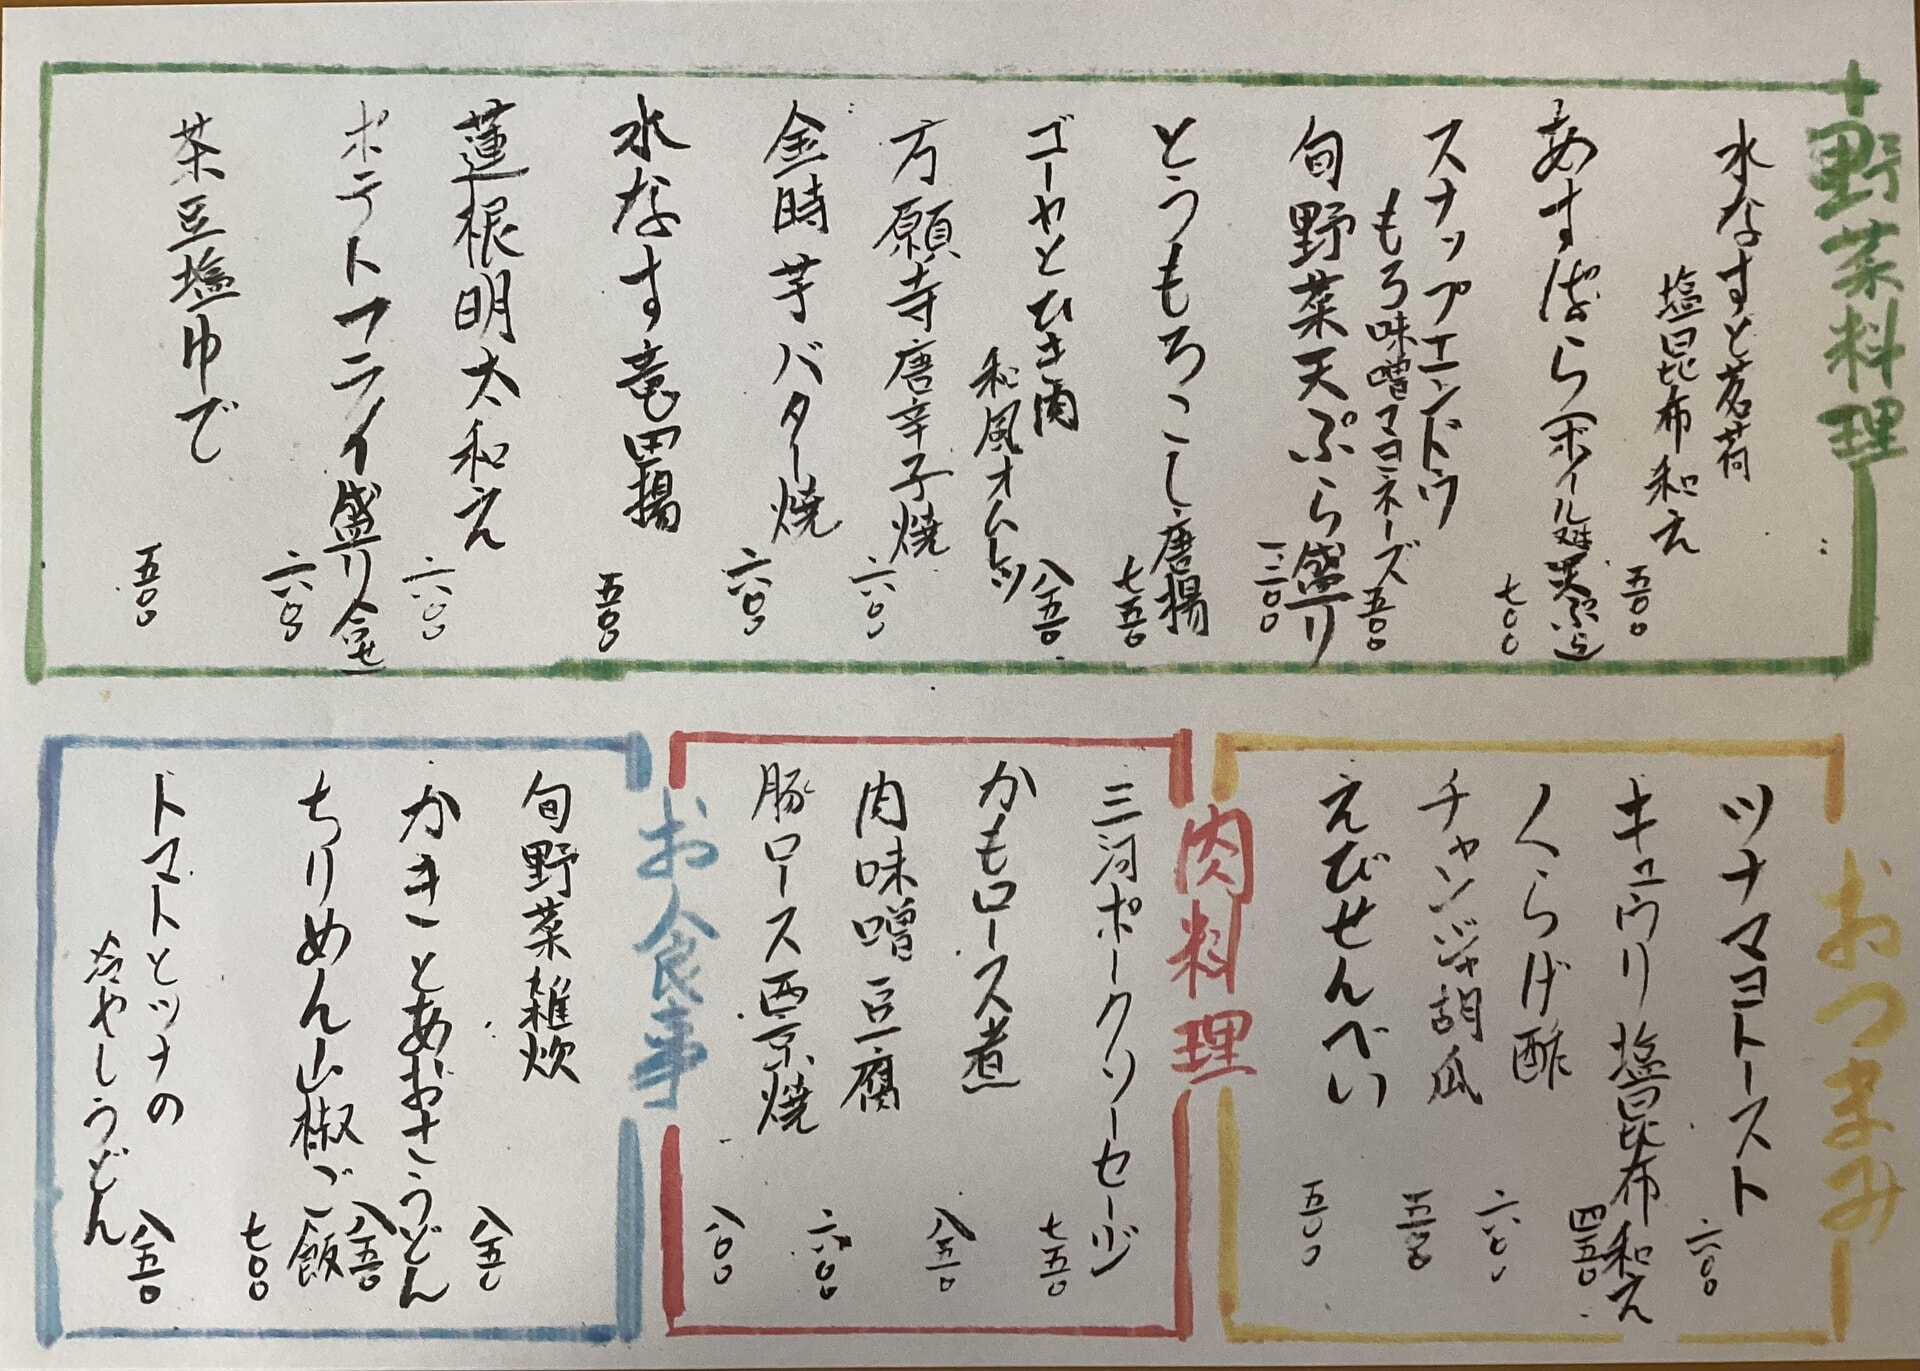 野菜料理
水なすと茗荷
塩昆布和え
五〇〇
あすぱら(ボイル又は天ぷら)
七〇〇
スナップエンドウ
もろ味噌マヨネーズ
五〇〇
旬野菜天ぷら盛り
一、三〇〇
とうもろこし唐揚
七五〇
ゴーヤとひき肉
和風オムレツ
八五〇
万願寺唐辛子焼
六〇〇
金時芋バター焼
六〇〇
水なす竜田揚
五〇〇
蓮根明太和え
六〇〇
ポテトフライ盛り合せ
六〇〇
茶豆塩ゆで
五〇〇
おつまみ
ツナマヨトースト
六〇〇
キュウリ塩昆布和え
四五〇
くらげ酢
六〇〇
チャンジャ胡瓜
五〇〇
えびせんべい
五〇〇
肉料理
三河ポークソーセージ
七五〇
かもロース煮
八五〇
肉味噌豆腐
六〇〇
豚ロース西京焼
八〇〇
お食事
旬野菜雑炊
八五〇
かきことあおさうどん
八五〇
ちりめん山椒ご飯
七〇〇
トマトとツナの
冷やしうどん
八五〇